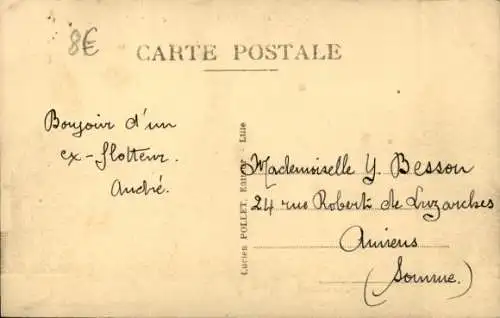 8€
CARTE POSTALE
Bonjoir d'un
ex-flotteur.
André.
Lucien POLLET, Editeur - Lille
Mademoiselle Y. Besson
24 rue Robert de Luzarches
Amiens
(Somme)